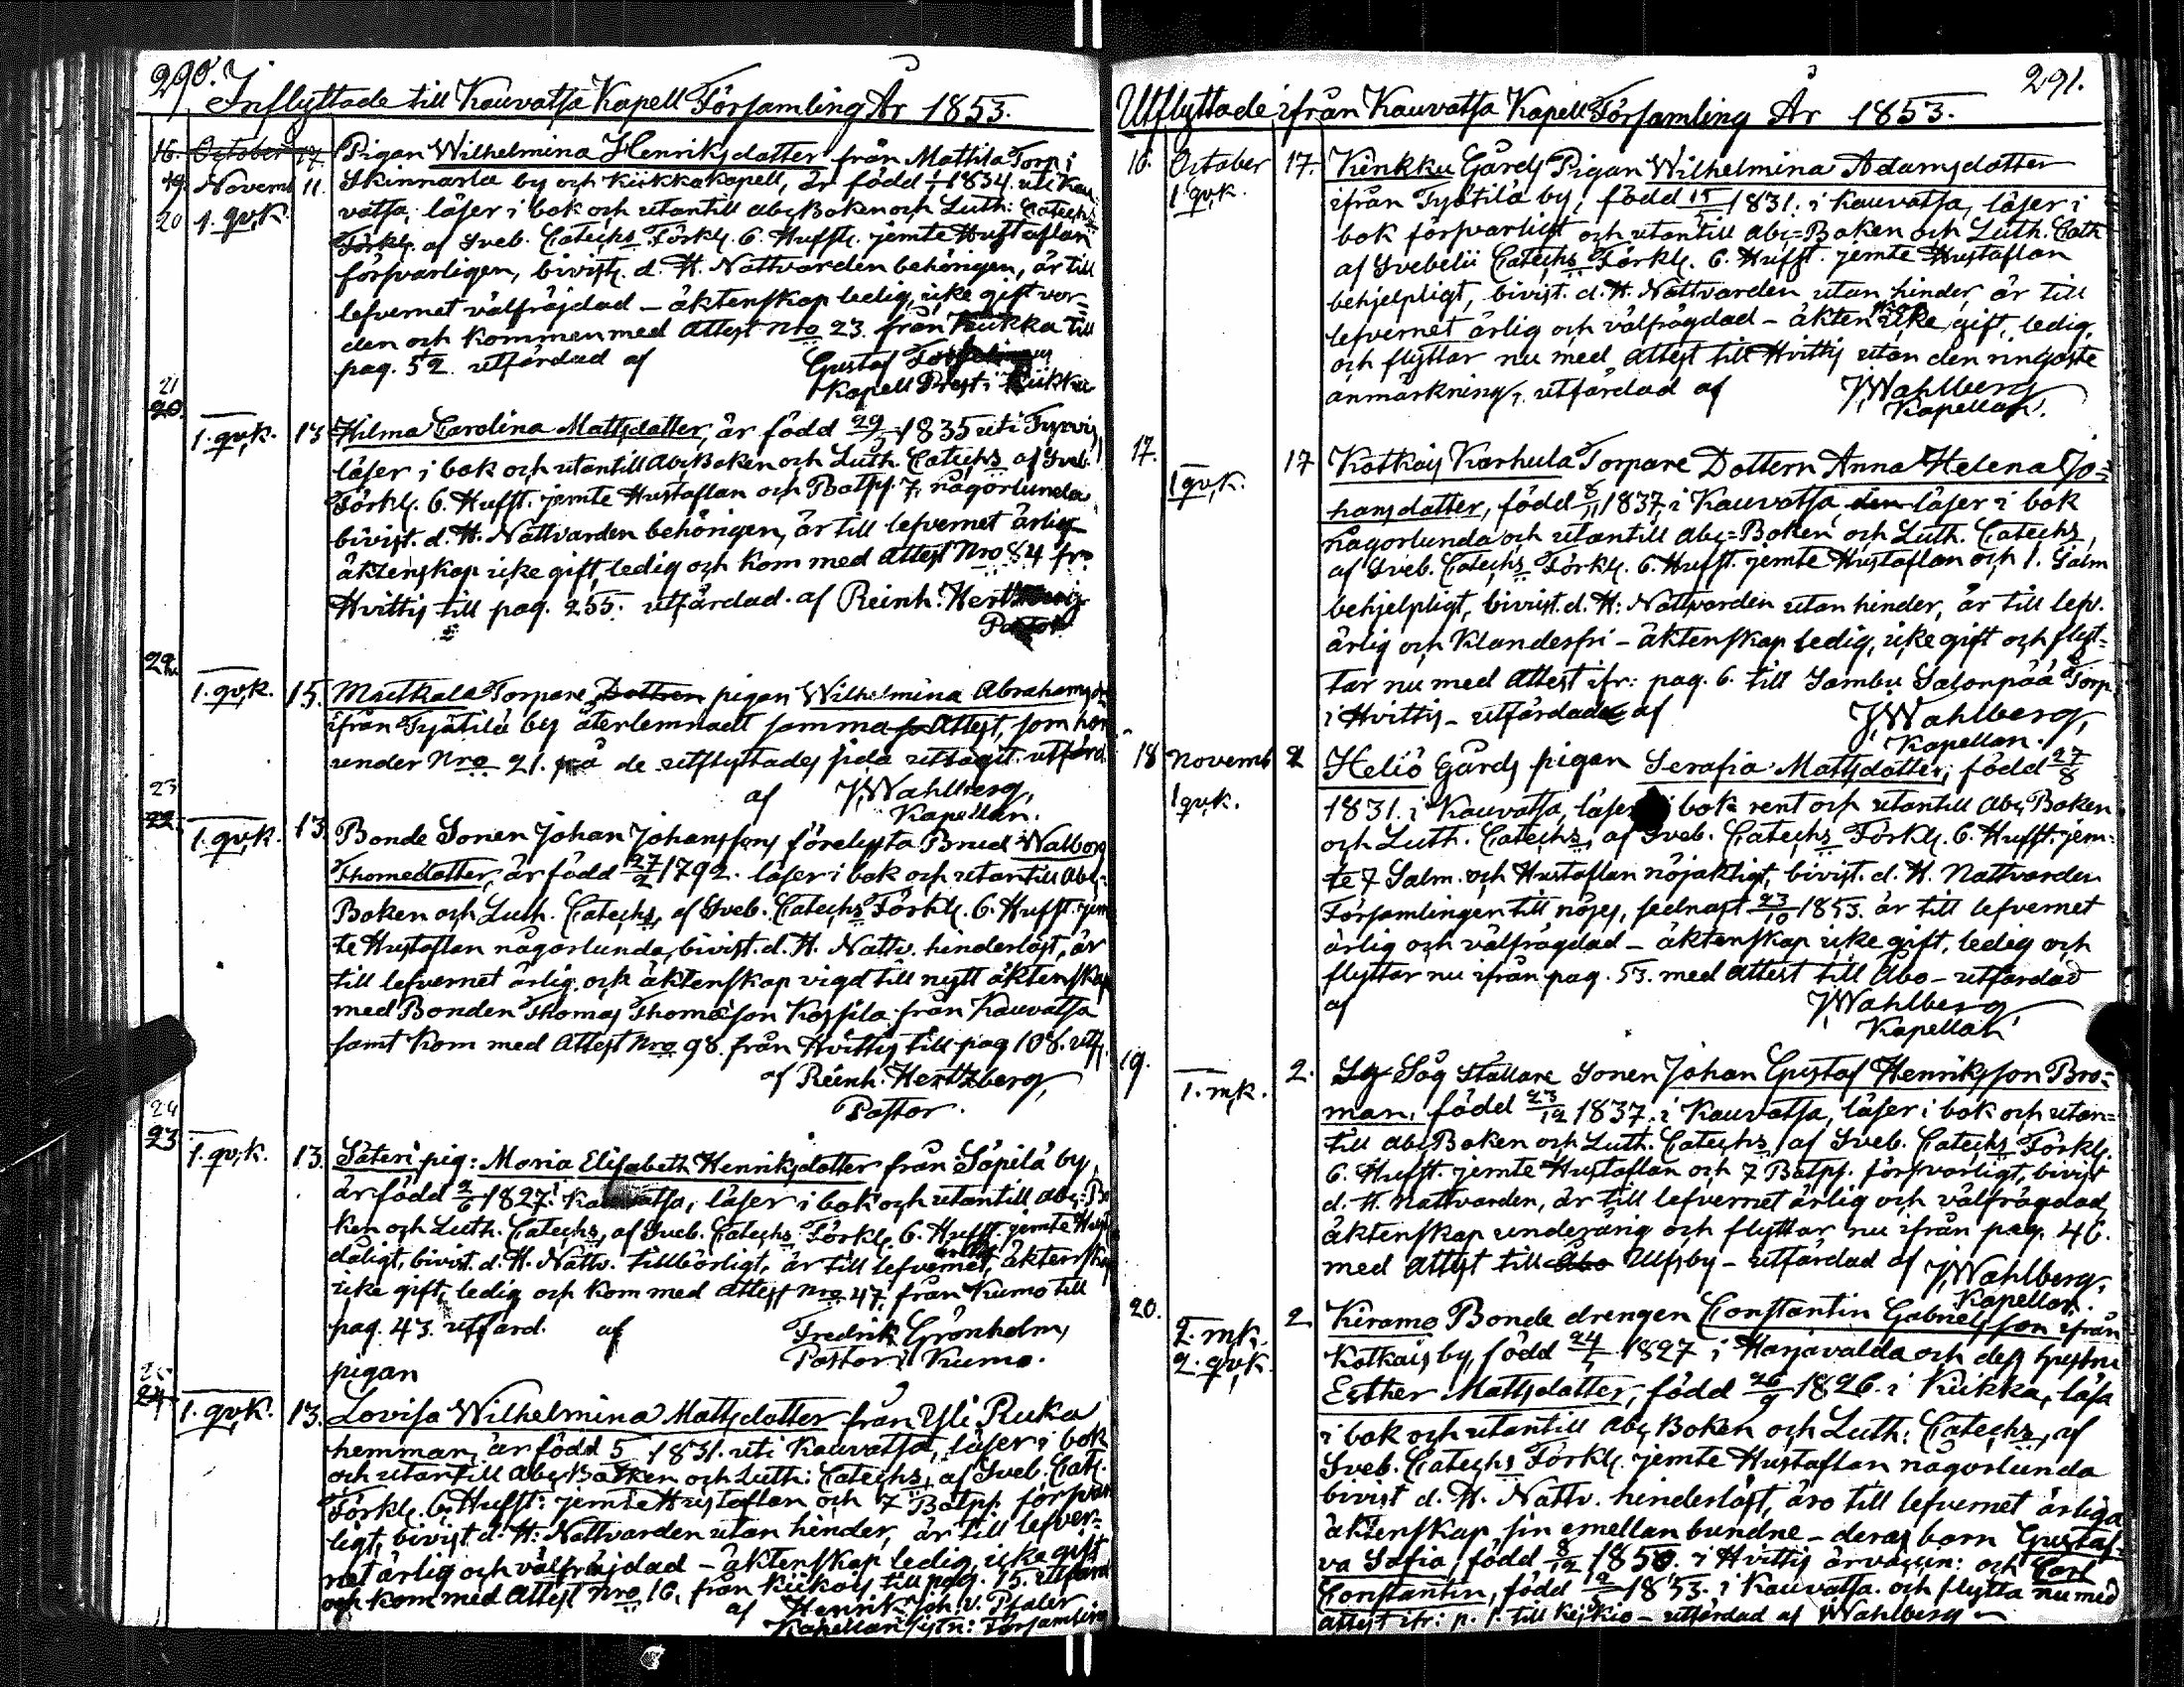 290.
Inflyttade till Kauvatsa Kapell Församling År 1853.
16. October 17. Pigan Wilhelmina Henriksdotter från Mattila Torp i
19. Novemb 11. Skinnarla by och Kiikka Kapell, är född 1/1 1834. uti Kau
20 1. qv.k. vatsa, läser i bok och utantill abc Boken och Luth: Catechs
Förkl. af Sveb. Catechs Förkl. 6. Hufst. jemte Hustaflan
försvarligen, bivist. d. H. Nattvarden behörigen, är till
lefvernet välfräjdad – äktenskap ledig, icke gift vor=
den och kommen med Attest Nro 23. från Kiikka till
pag. 52. utfärdad af Gustaf
Kapell Prest i Kiikka
21
20.
1. qv.k. 13 Hilma Carolina Mattsdotter, är född 29/5 1835 uti Tyrvis,
läser i bok och utantill Abc Boken och Luth. Catechs af Sveb.
Förkl. 6. Hufst. jemte Hustaflan och Botps. 7. någorlunda
bivist. d. H. Nattvarden behörigen, är till lefvernet ärlig
äktenskap icke gift, ledig och kom med Attest Nro 84 fr.
Hvittis till pag. 255. utfärdad af Reinh. Hertzberg
Pastor
22.
1. qv.k. 15. Maetkala Torpare Dottren pigan Wilhelmina Abrahamsdr
ifrån Tyätilä by återlemnadt samma Attest, som hon
under Nro 21. på de utflyttades sida uttagit. utfärd.
af J. Wahlberg,
Kapellan.
23
22.
1. qv.k. 13. Bonde Sonen Johan Johanssons förelysta Brud Walborg
Thomedotter, är född 27/2 1792. läser i bok och utantill Abc=
Boken och Luth. Catechs, af Sveb. Catechs Förkl. 6. Hufst. jem
te Hustaflan någorlunda, bivist. d. H. Nattv. hinderlöst, är
till lefvernet ärlig och äktenskap vigd till nytt äktenskap
med Bonden Thomas Thomasson Kossila från Kauvatsa
samt kom med Attest Nro 98. från Hvittis till pag 108. utf.
af Reinh. Hertzberg,
Pastor.
24
23
1. qv.k. 13. Säteri pig: Maria Elisabeth Henriksdotter från Säpilä by,
är född 2/6 1827. Kauvatsa, läser i bok och utantill abc=Bo
ken och Luth. Catechs, af Sveb. Catechs Förkl. 6. Hufst. jemte Hust
dåligt, bivist. d. H. Nattv. tillbörligt, är till lefvernet ärlig, äktenskap
icke gift, ledig och kom med Attest Nro 47. från Kumo till
pag. 43. utfärd. af Fredrik Grönholm,
Pastor i Kumo.
pigan
25
24
1. qv.k. 13. Lovisa Wilhelmina Mattsdotter från Yli Ruka
hemman, är född 5/ 1831. uti Kauvatsa, läser i bok
och utantill Abc Boken och Luth: Catechs, af Sveb. Cat.
Förkl. 6. Hufst: jemte Hustaflan och 7 Botps. försvar
ligt, bivist. d. H. Nattvarden utan hinder, är till lefver=
net ärlig och välfräjdad – äktenskap ledig, icke gift
och kom med Attest Nro 16. från Kiikois till pag. 15. utfärd
af Henrik Joh. v. Pfaler
Kapellan Församling
291.
Utflyttade ifrån Kauvatsa Kapell Församling År 1853.
16. October 17. Kinkku Gårds Pigan Wilhelmina Adamsdotter
1. qv.k. ifrån Tyätilä by, född 15/ 1831. i Kauvatsa, läser i
bok försvarligt och utantill abc=Boken och Luth. Cath
af Svebelii Catechs Förkl. 6. Hufst. jemte Hustaflan
behjelpligt, bivist. d. H. Nattvarden utan hinder, är till
lefvernet ärlig och välfrägdad – äkten skap icke gift, ledig,
och flyttar nu med attest till Hvittis utan den ringaste
anmärkning, utfärdad af J. Wahlberg
Kapellan.
17. 17 Kotkais Karhula Torpare Dottern Anna Helena Jo=
1 qv.k. hansdotter, född 8/11 1837, i Kauvatsa, läser i bok
någorlunda och utantill abc=Boken och Luth. Catechs,
af Sveb. Catechs Förkl. 6. Hufst. jemte Hustaflan och 1. Salm
behjelpligt, bivist. d. H: Nattvarden utan hinder, är till lefv.
ärlig och klanderfri – äktenskap ledig, icke gift och flyt=
tar nu med Attest ifr: pag. 6. till Sambu Salonpää Torp.
i Hvittis – utfärdad af J. Wahlberg,
Kapellan.
18 Novemb 2 Heliö Gårds pigan Serafia Mattsdotter, född 27/8
1 qv.k. 1831. i Kauvatsa, läser i bok rent och utantill abc Boken
och Luth. Catechs, af Sveb. Catechs Förkl. 6. Hufst. jem=
te 7 Salm. och Hustaflan nöjaktigt, bivist. d. H. Nattvarden
Församlingen till nöjes, sednast 23/10 1853. är till lefvernet
ärlig och välfrägdad – äktenskap icke gift, ledig och
flyttar nu ifrån pag. 53. med attest till Åbo – utfärdad
af J. Wahlberg
Kapellan
19. 2. Sg Såg Ställare Sonen Johan Gustaf Henriksson Bro=
1. mk. man, född 23/12 1837. i Kauvatsa, läser i bok och utan=
till abc Boken och Luth. Catechs, af Sveb. Catechs Förkl.
6. Hufst. jemte Hustaflan och 7 Botps. försvarligt, bivist
d. H. Nattvarden, är till lefvernet ärlig och välfrägdad,
äktenskap underårig och flyttar nu ifrån pag. 46.
med Attest till Åbo Ulfsby – utfärdad af J. Wahlberg,
Kapellan.
20. 2 Kiramo Bonde drengen Constantin Gabrielsson ifrån
2. mk. Kotkais by född 24/5 1827 i Harjavalda och dess hustru
2. qv.k. Esther Mattsdotter, född 26/9 1826. i Kiikka, läsa
i bok och utantill abc Boken och Luth: Catechs, af
Sveb. Catechs Förkl. jemte Hustaflan någorlunda
bivist d. H. Nattv. hinderlöst, äro till lefvernet ärliga
äktenskap sin emellan bundne – deras barn Gustaf=
va Sofia, född 8/12 1850. i Hvittis är vacun: och Carl
Constantin, född 1853. i Kauvatsa. och flytta nu med
attest ifr: p. 1. till Keikiö – utfärdad af Wahlberg